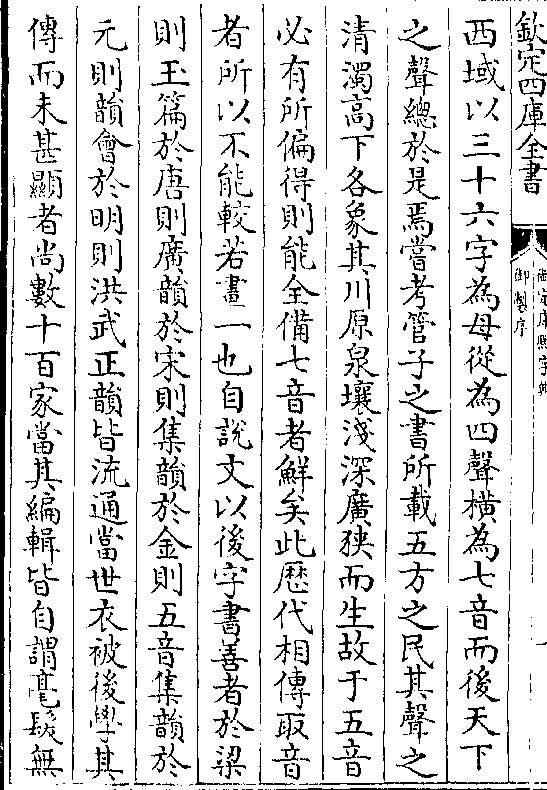 欽定四庫全書
御定康熙字典
御製序
西域以三十六字為母從為四聲横為七音而後天下
之聲總於是焉嘗考管子之書所載五方之民其聲之
清濁高下各象其川原泉壤淺深廣狹而生故于五音
必有所偏得則能全備七音者鮮矣此歷代相傳取音
者所以不能較若畫一也自說文以後字書善者於梁
則玉篇於唐則廣韻於宋則集韻於金則五音集韻於
元則韻會於明則洪武正韻皆流通當世衣被後學其
傳而未甚顯者尚數十百家當其編輯皆自謂毫髮無